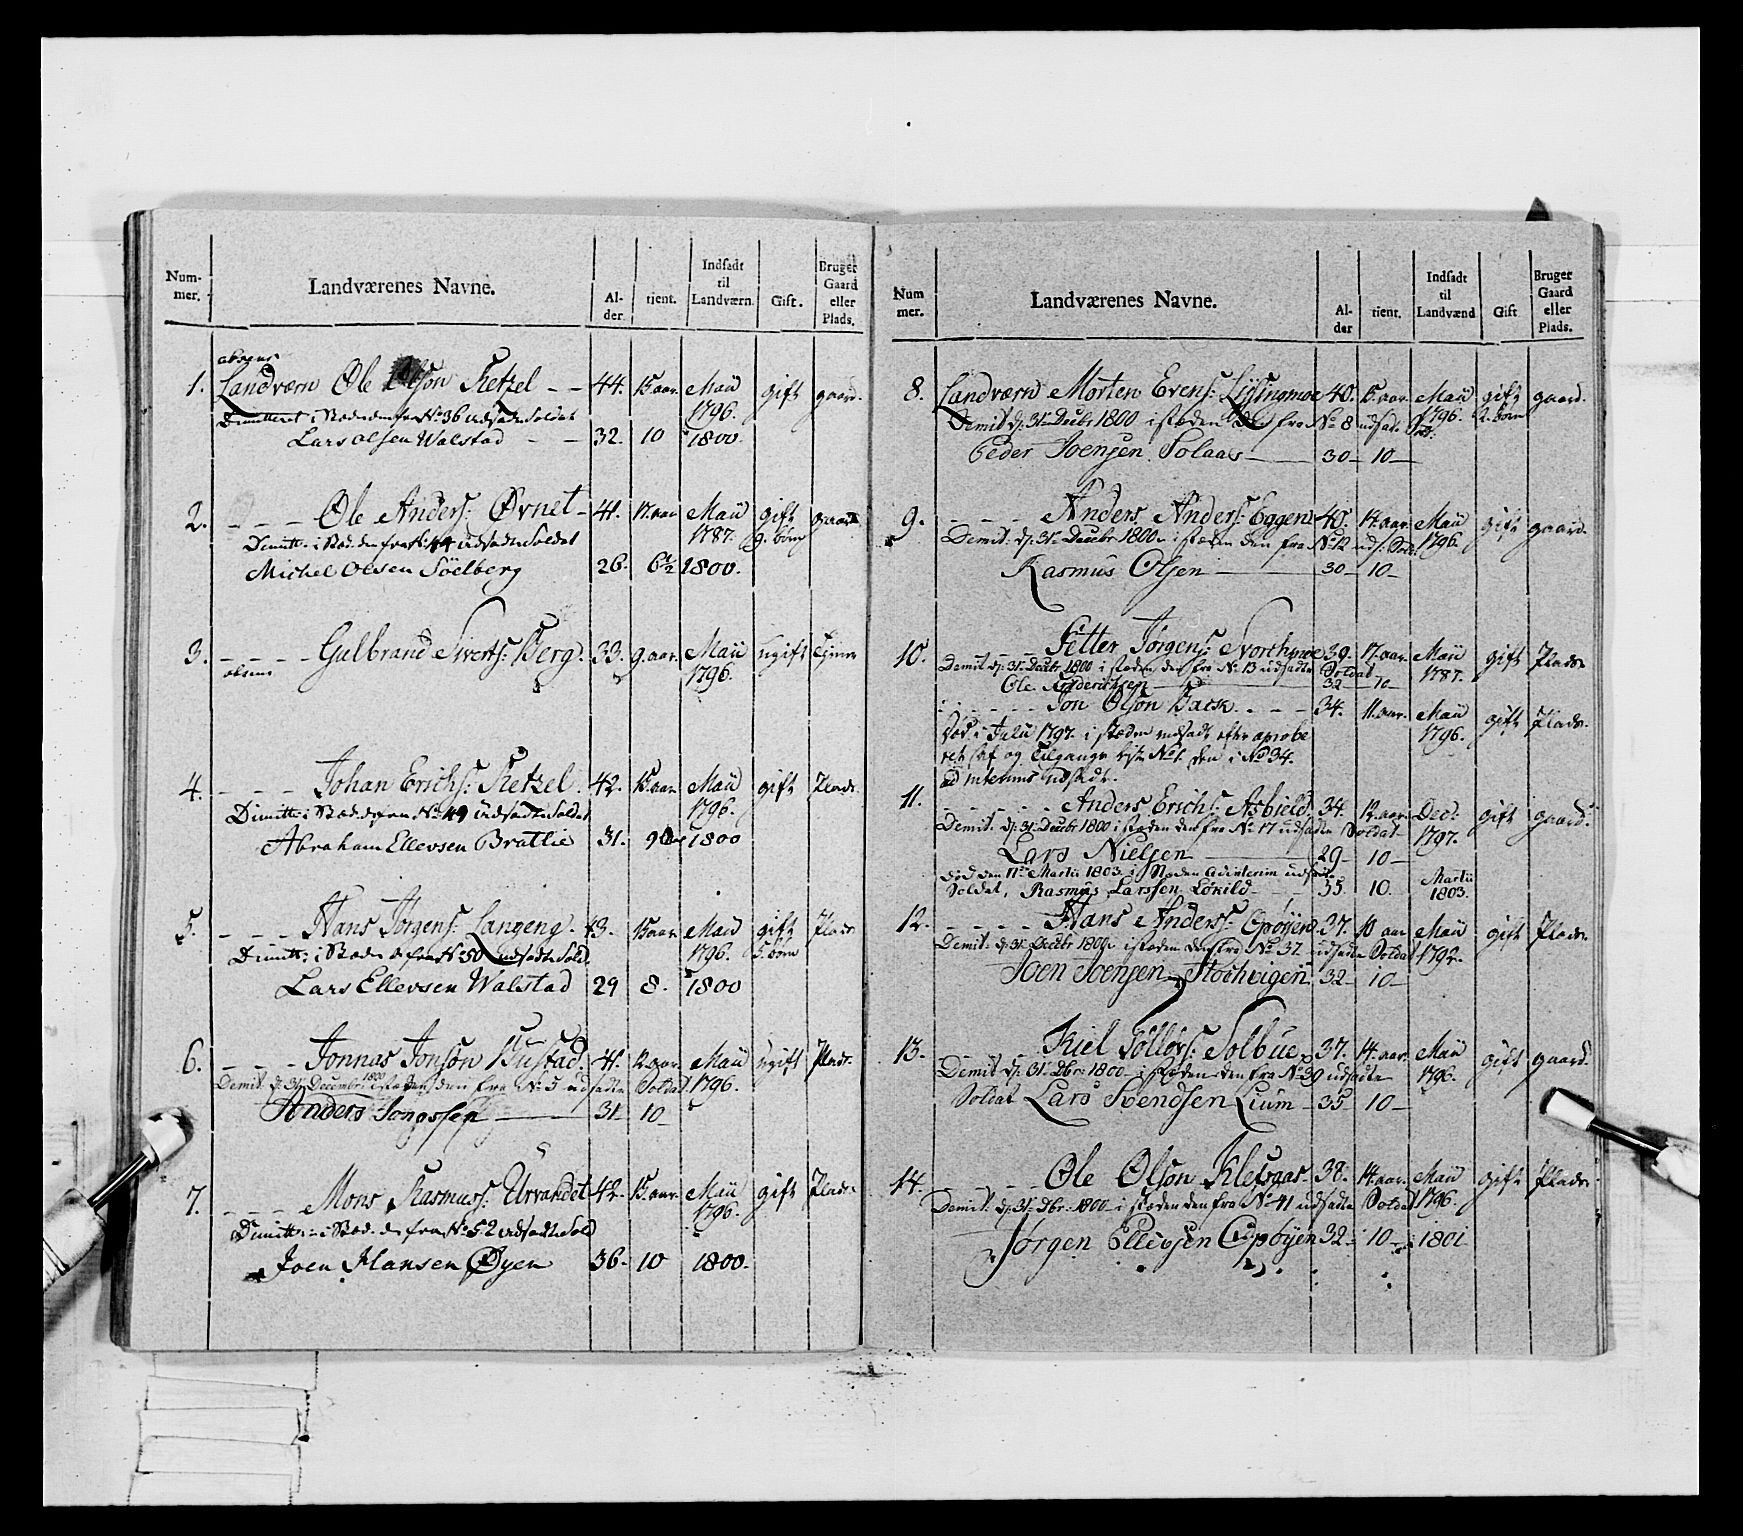 Num-
mer.
Landværenes Navne.
Al-
der.
tient.
Indsadt
til
Landværn.
Gift.
Bruger
Gaard
eller
Plads.
absens
1. Landværn Ole Olson Ketzel - - 44. 15 aar. Maii 1796. gift gaard.
Dimitteret i Stæden den fra No 36 udsadte Soldat
Lars Olsen Walstad - - 32. 10 1800.
2. - - - Ole Anders: Øvnet - 41. 17. aar Maii 1787. gift 9. børn gaard
Dimitt: i Stæd. den fra No 44 udsadte Soldat
Michel Olsen Söelberg 26. 6½ 1800.
3. - - - - Gulbrand Siverts: Berg. 33. 9. aar. Maii 1796. ugift tjener
absens
4. - - - Johan Erichs: Ketzel. 42. 15. aar Maii 1796. gift Plads.
Dimitt: i Stæd. den fra No 49 udsadte Soldat
Abraham Ellevsen Brattlie 31. 9 1800
5. - - - Hans Jørgens: Langeng. 43. 15 aar Maii 1796. gift 5. børn Plads.
Dimitt: i Stæd. den fra No 50 udsadte Sold
Lars Ellevsen Walstad 29 8. 1800
6. - - - Jonnas Jonson Bustad. 41. 12. aar. Maii 1796. ugift Plads.
Demit. d. 31 Decembr. 1800 i stæden den fra No 5 udsadte Soldat
Anders Jongssen 31. 10
7. - - - Mons Rasmuss: Urvandet 42. 15. aar. Maii 1796. gift Plads.
Dimitt: i Stæd. den fra No 52 udsadte Sold
Joen Hansen Øyen 36. 10 1800.
Num
mer.
Landværenes Navne.
Al-
der
tient.
Indsadt
til
Landværnd
Gift
Bruger
Gaard
eller
Plads.
8. Landværn Morten Evens: Lysingmoe 40. 15. aar. Maii 1796. gift 2. børn gaard.
Demit d. 31 Decbr 1800 i stæden den fra No 8 udsad. Sold:
Peder Joensen Solaas 30 10
9. - - - - Anders Anders: Eggen 40. 14. aar. Maii 1796. gift gaard.
Demit. d. 31 Decbr 1800 i stæden den fra No 12 uds: Sold
Rasmus Olsen 30 10
10. - - - Petter Jørgens: Svorthmoe 39. 17. aar. Maii 1787. gift Plads.
Demit d. 31 Decbr 1800 i stæden den fra No 13 udsadte Soldat
Ole Friderichsen 32 10
- - - - - Jon Olson Barsk. - - - 34. 11. aar. Maii 1796. gift Plads.
død. i Julii 1797. i stæden indsadt efter aprobe
ret af og Tilgangs liste No 1. den i No 34.
ad interims udsadt.
11. - - - - - Anders Erichs: Asbield. 34. 12. aar. Dec. 1797. gift gaard.
Demit. d. 31 Decbr 1800 i stæden den fra No 17 udsadte Soldat
Lars Nielsen 29 10
død den 11te Martii 1803. i Stæden ad interim udsat
Soldat, Rasmus Larssen Lökild - - 35 10. Martii 1803.
12. - - - - Hans Anderss: Opöyen 37. 10 aar Maii 1792. gift Plads.
Demit. d. 31 Decbr 1800 i stæden den fra No 37 udsadte Soldat
Joen Joensen Stochvigen 32 10
13. - - - - Kiel Tollövs: Solbue 37. 14. aar. Maii 1796. gift gaard.
Demit d. 31 Dbr. 1800 i stæden den fra No 39 udsadte
Soldat Lars Svendsen Lium 35 10
14. - - - - Ole Olson Klefsaas 38. 14. aar. Maii 1796. gift Plads.
Demit. d. 31 Dbr. 1800 i stæden den fra No 41 udsadte Soldat
Jørgen Ellevsen Opöyen 32 10 1801